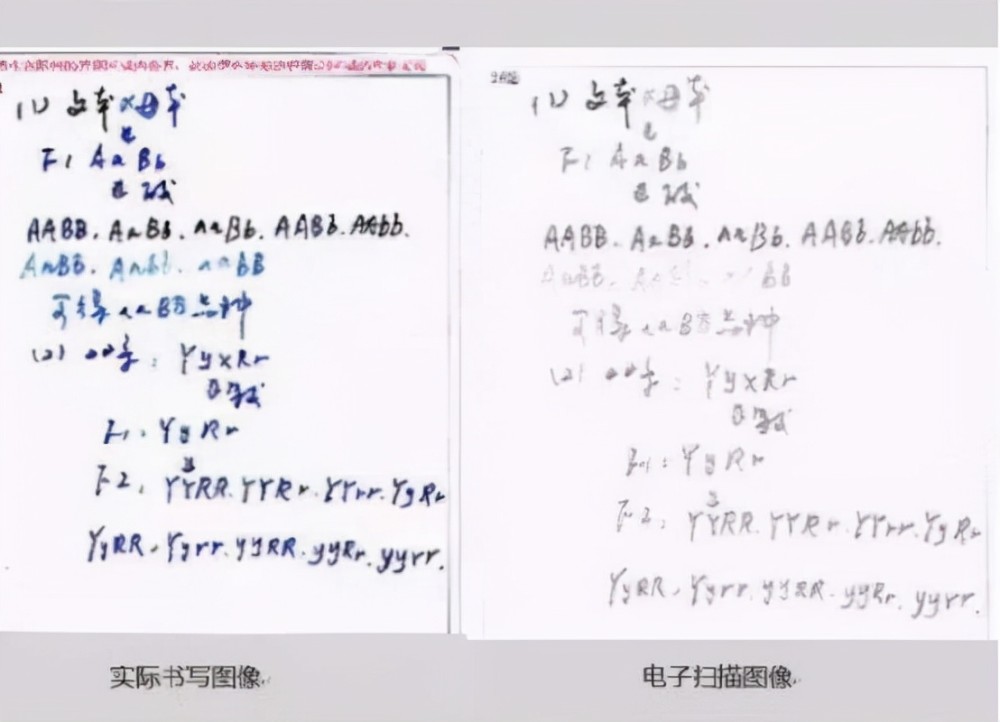 (1) 父本×母本
F1 AaBb
AABB. AaBb. aaBb. AABb. AAbb.
AaBB. Aabb. aaBB
可得aaBB品种
(2) : Yy×Rr
F1: YyRr
F2: YYRR. YYRr. YYrr. YyRr
YyRR. Yyrr. yyRR. yyRr. yyrr.
实际书写图像
(1) 父本×母本
F1 AaBb
AABB. AaBb. aaBb. AABb. AAbb.
AaBB. BB
可得aaBB品种
(2) : Yy×Rr
YyRr
F2: YYRR. YYRr. YYrr. YyRr
YyRR. Yyrr. yyRR. yyRr. yyrr.
电子扫描图像